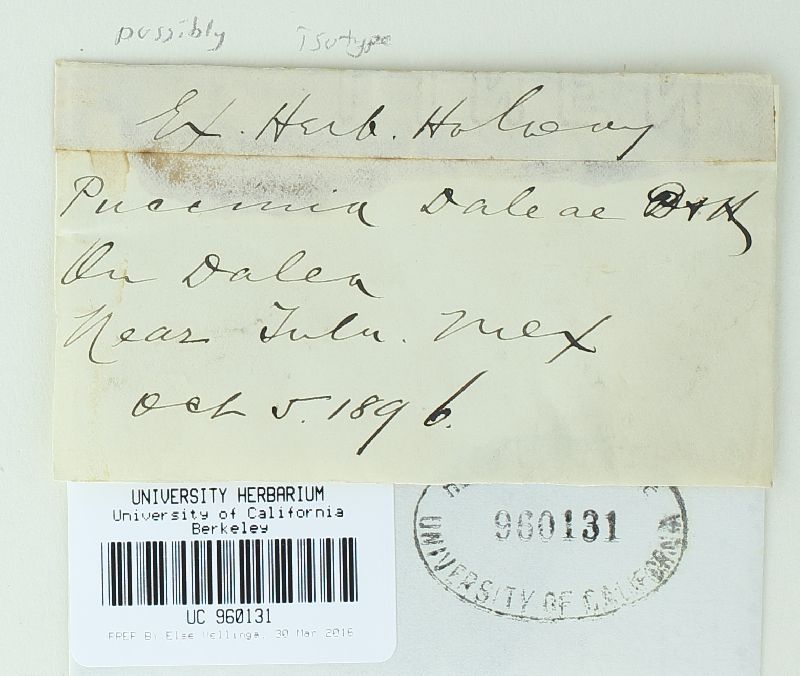 possibly Isotype
Ex. Herb. Holway
Puccinia Daleae D+H
On Dalea
Near Tula. Mex
Oct 5. 1896.
UNIVERSITY HERBARIUM
University of California
Berkeley
UC 960131
PREP By Else Vellinga, 30 Mar 2016
960131
UNIVERSITY OF CALIFORNIA